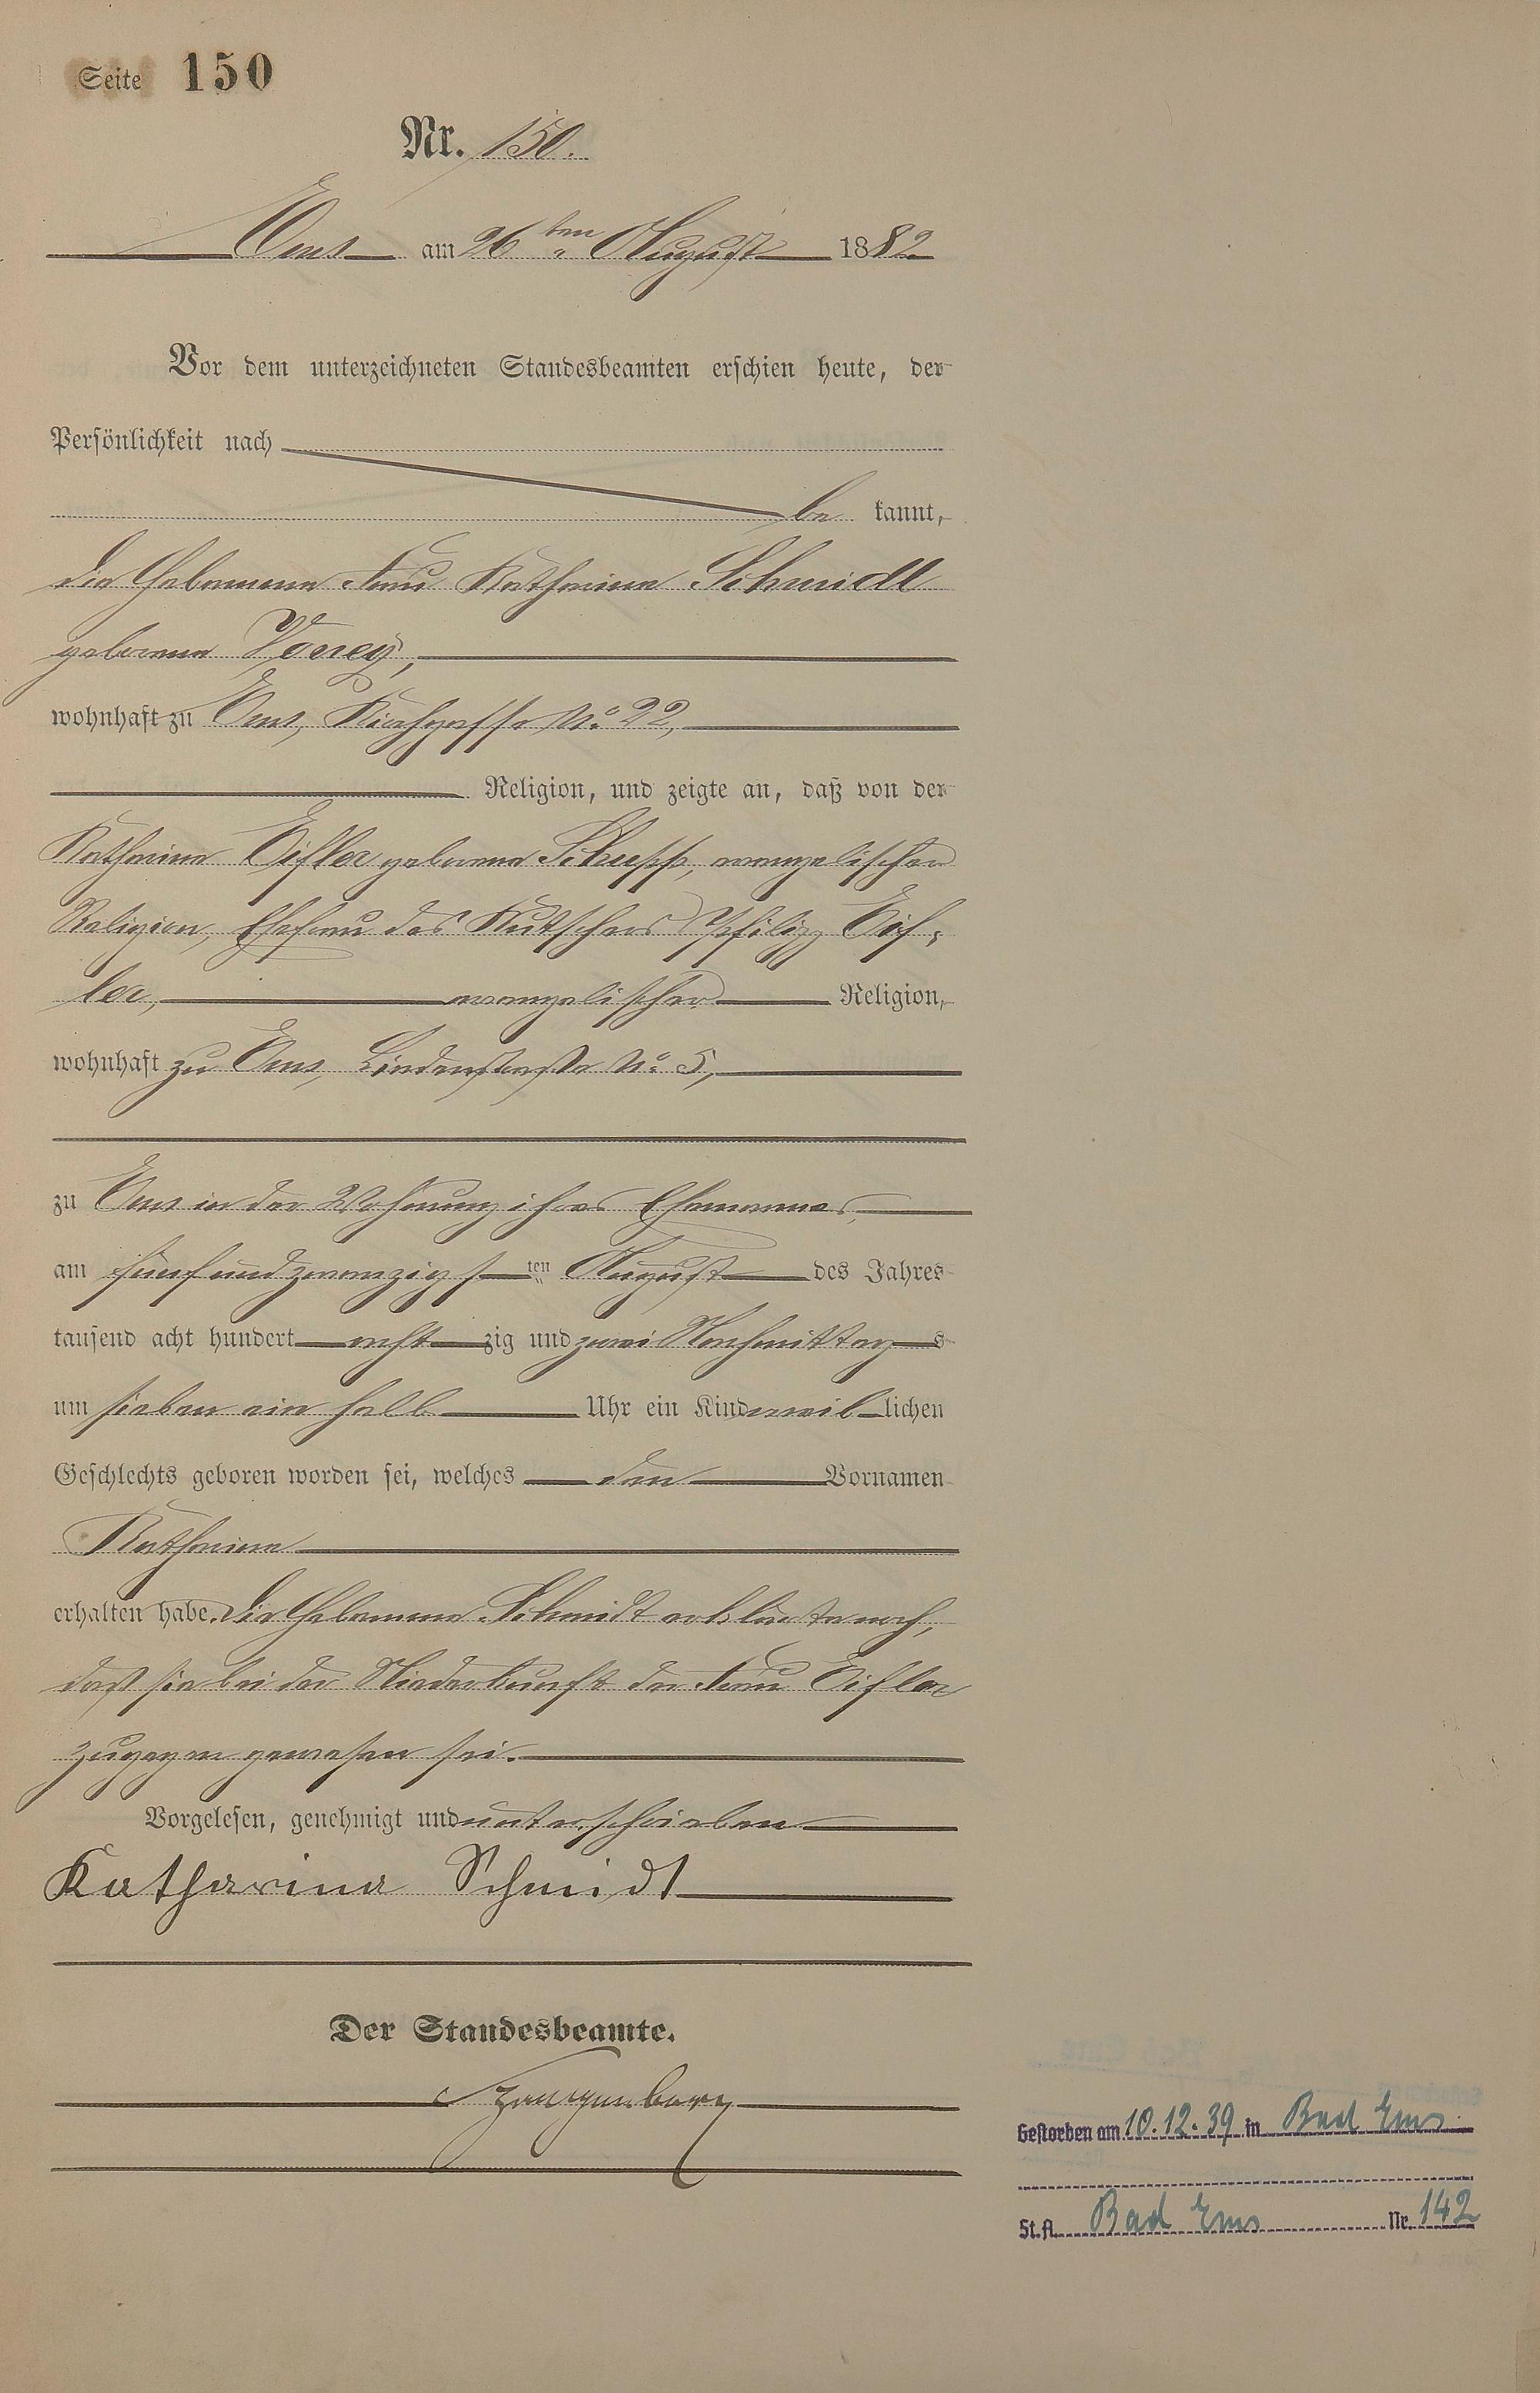 Seite 150
Nr. 150.
Ems am 26ten August 1882
Vor dem unterzeichneten Standesbeamten erschien heute, der
Persönlichkeit nach
be kannt,
die Hebamme Frau Katharina Schmidt
geborene
wohnhaft zu Ems, Kirchgasse No. 22,
Religion, und zeigte an, daß von der
Katharina Eifler geborene Schupp, evangelischer
Religion, Ehefrau des Kutschers Philipp Eif-
ler, evangelischer Religion,
wohnhaft zu Ems, Lindenstraße No. 5,
zu Ems in der Wohnung ihres Ehemannes,
am fünf und zwanzigsten August des Jahres
tausend acht hundert acht zig und zwei Nachmittags
um sieben ein halb Uhr ein Kind weiblichen
Geschlechts geboren worden sei, welches den Vornamen
Katharina
erhalten habe. Die Hebamme Schmidt erklärte noch,
daß sie bei der Niederkunft der Frau Eifler
zugegen gewesen sei.
Vorgelesen, genehmigt und unterschrieben
Katharina Schmidt
Der Standesbeamte.
Spangenberg
Gestorben am 10.12.39 in Bad Ems
St.A. Bad Ems Nr. 142